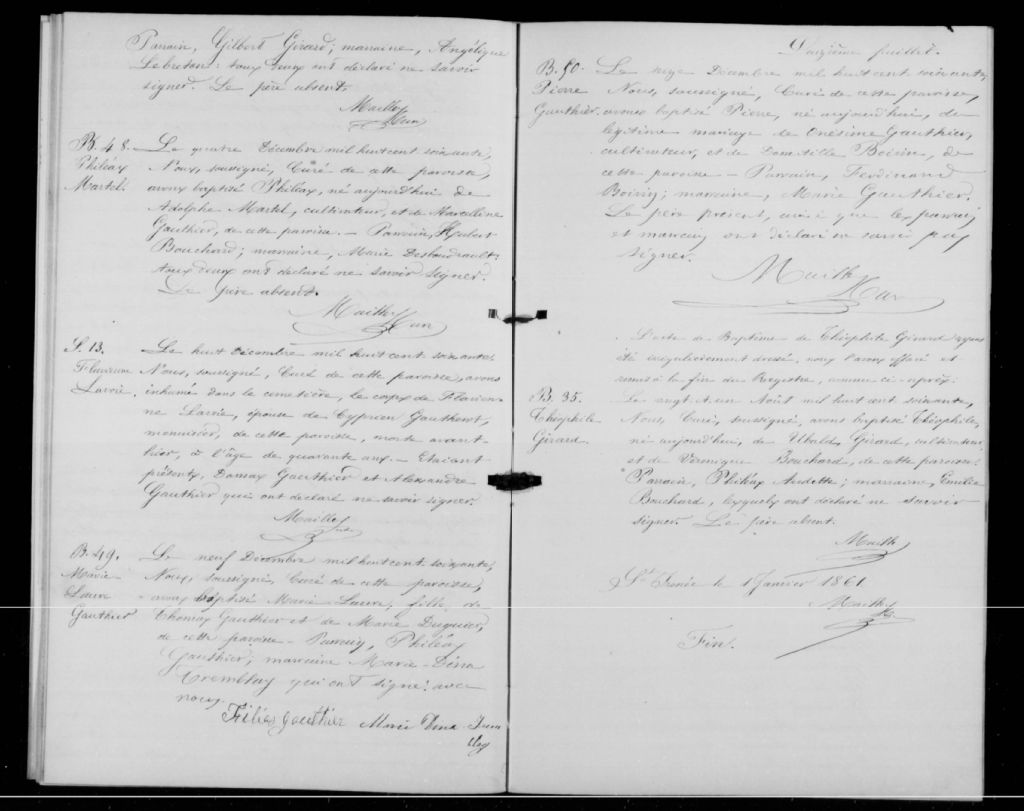 Parrain, Gilbert Girard; marraine, Angélique
Lebreton: tous deux ont déclaré ne savoir
signer. Le père absent.
Mailley
Cur
B. 48.
Philéas
Martel.
Le quatre Décembre mil huit cent soixante,
Nous, soussigné, Curé de cette paroisse,
avons baptisé Philéas, né aujourd'hui de
Adolphe Martel, cultivateur, et de Marcelline
Gauthier, de cette paroisse. — Parrain, Hubert
Bouchard; marraine, Marie Desbaudrault:
tous deux ont déclaré ne savoir signer.
Le père absent.
Mailley
Cur
S. 13.
Flavienne
Lavoie.
Le huit Décembre mil huit cent soixante
Nous, soussigné, Curé de cette paroisse, avons
inhumé dans le cemetière, le corps de Flavien-
ne Lavoie, épouse de Cyprien Gauthier,
menuisier, de cette paroisse, morte avant
hier, à l'âge de quarante ans. — Etaient
présents, Damas Gauthier et Alexandre
Gauthier qui ont déclaré ne savoir signer.
Mailley
B. 49.
Marie
Laure
Gauthier
Le neuf Décembre mil huit cent soixante,
Nous, soussigné, Curé de cette paroisse,
avons baptisé Marie-Laure, fille de
Thomas Gauthier et de Marie Duguier,
de cette paroisse — Parrain, Philéas
Gauthier; marraine Marie-Dina
Tremblay qui ont signé avec
nous.
Filias gauthier Marie Dina Trem
blay
Onzième feuillet.
B. 50.
Pierre
Gauthier.
Le seize Décembre mil huit cent soixante,
Nous, soussigné, Curé de cette paroisse,
avons baptisé Pierre, né aujourd'hui, de
légitime mariage de Onésime Gauthier,
cultivateur, et de Domitille Boivin, de
cette paroisse — Parrain, Ferdinand
Boivin; marraine, Marie Gauthier.
Le père présent, ainsi que les parrain
et marraine ont déclaré ne savoir pas
signer.
Mailley
Cur
L'acte de Baptême de Théophile Girard ayant
été irrégulièrement dressé, nous l'avons effacé et
remis à la fin du Registre, comme ci-après:
B. 35.
Théophile
Girard.
Le vingt et un Août mil huit cent soixante,
Nous, Curé, soussigné, avons baptisé Théophile,
né aujourd'hui, de Ubald Girard, cultivateur,
et de Véronique Bouchard, de cette paroisse.
Parrain, Philéas Audette; marraine, Emilie
Bouchard, lesquels ont déclaré ne savoir
signer. Le père absent.
Mailley
St Irénée le 1 Janvier 1861
Mailley
Fin.